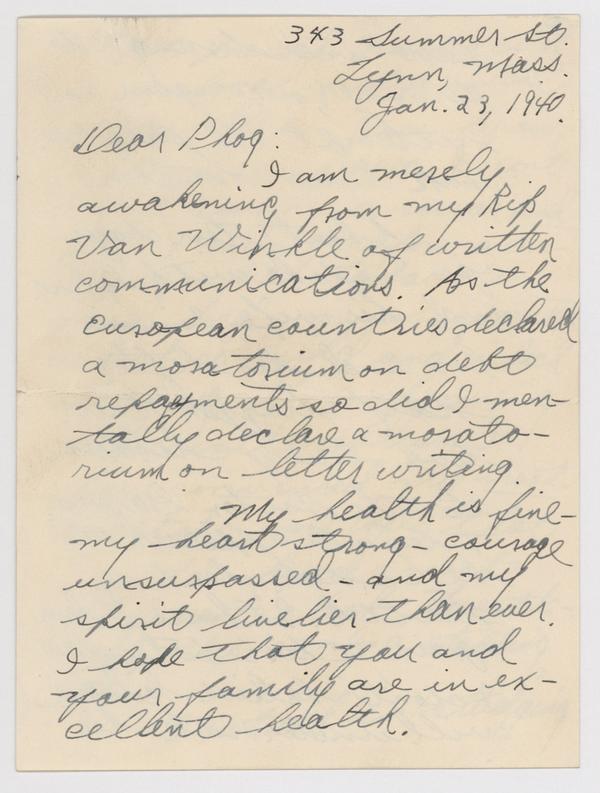 343 Summer St.
Lynn, Mass.
Jan. 23, 1940.
Dear Phog:
I am merely
awakening from my Rip
Van Winkle of written
communications. As the
European countries declared
a moratorium on debt
repayments so did I men-
tally declare a morato-
rium on letter writing.
My health is fine-
my heart strong - courage
unsurpassed - and my
spirit livelier than ever.
I hope that you and
your family are in ex-
cellent health.